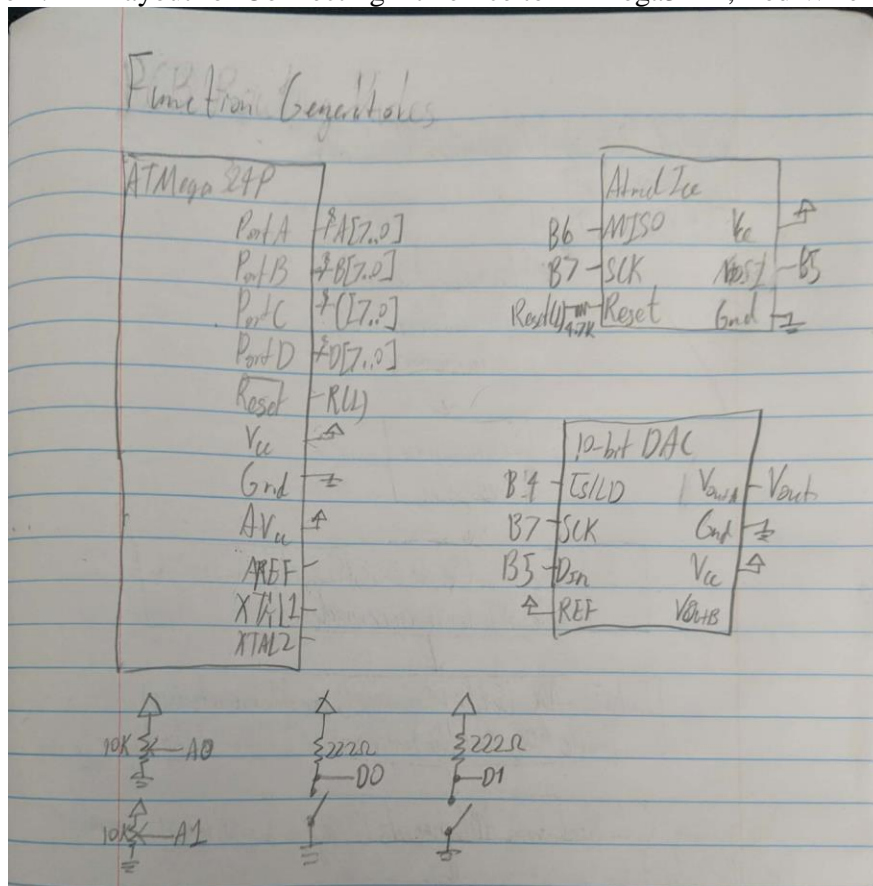 Function Generator
ATMega 324P
PortA A[7..0]
PortB B[7..0]
PortC C[7..0]
PortD D[7..0]
Reset R(L)
Vcc
Gnd
AVcc
AREF
XTAL1
XTAL2
Atmel Ice
B6 MISO Vcc
B7 SCK MOSI B5
Reset(L) 4.7K Reset Gnd
10-bit DAC
B4 CS/LD VoutA Vout
B7 SCK Gnd
B5 Din Vcc
REF VoutB
10K A0
222Ω D0
222Ω D1
10K A1